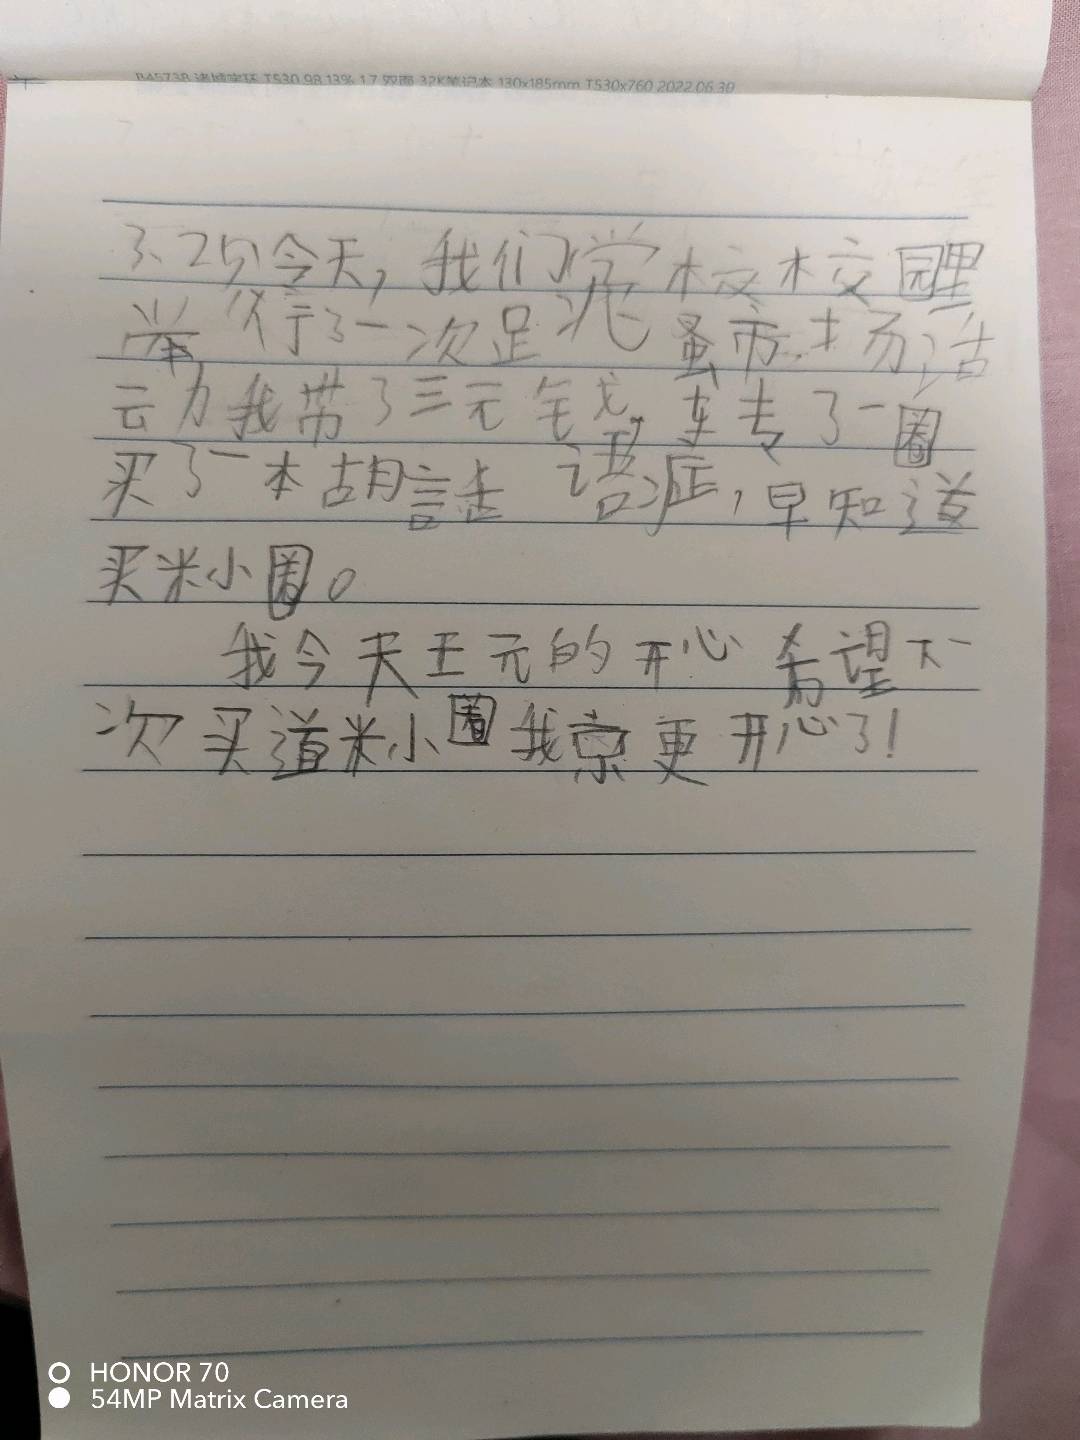 B4573B 诸城宝环 T530 98 13% 1.7 双面 32K笔记本 130x185mm T530x760 2022.06.30
3、25分今天，我们学校校园里
举行了一次足兆蚤市场，活
动我带了三元钱，转了一圈
买了一本胡言 语症，早知道
买米小圈。
我今天王元的开心 希望下一
次买道米小圈我京更开心了！
HONOR 70
54MP Matrix Camera